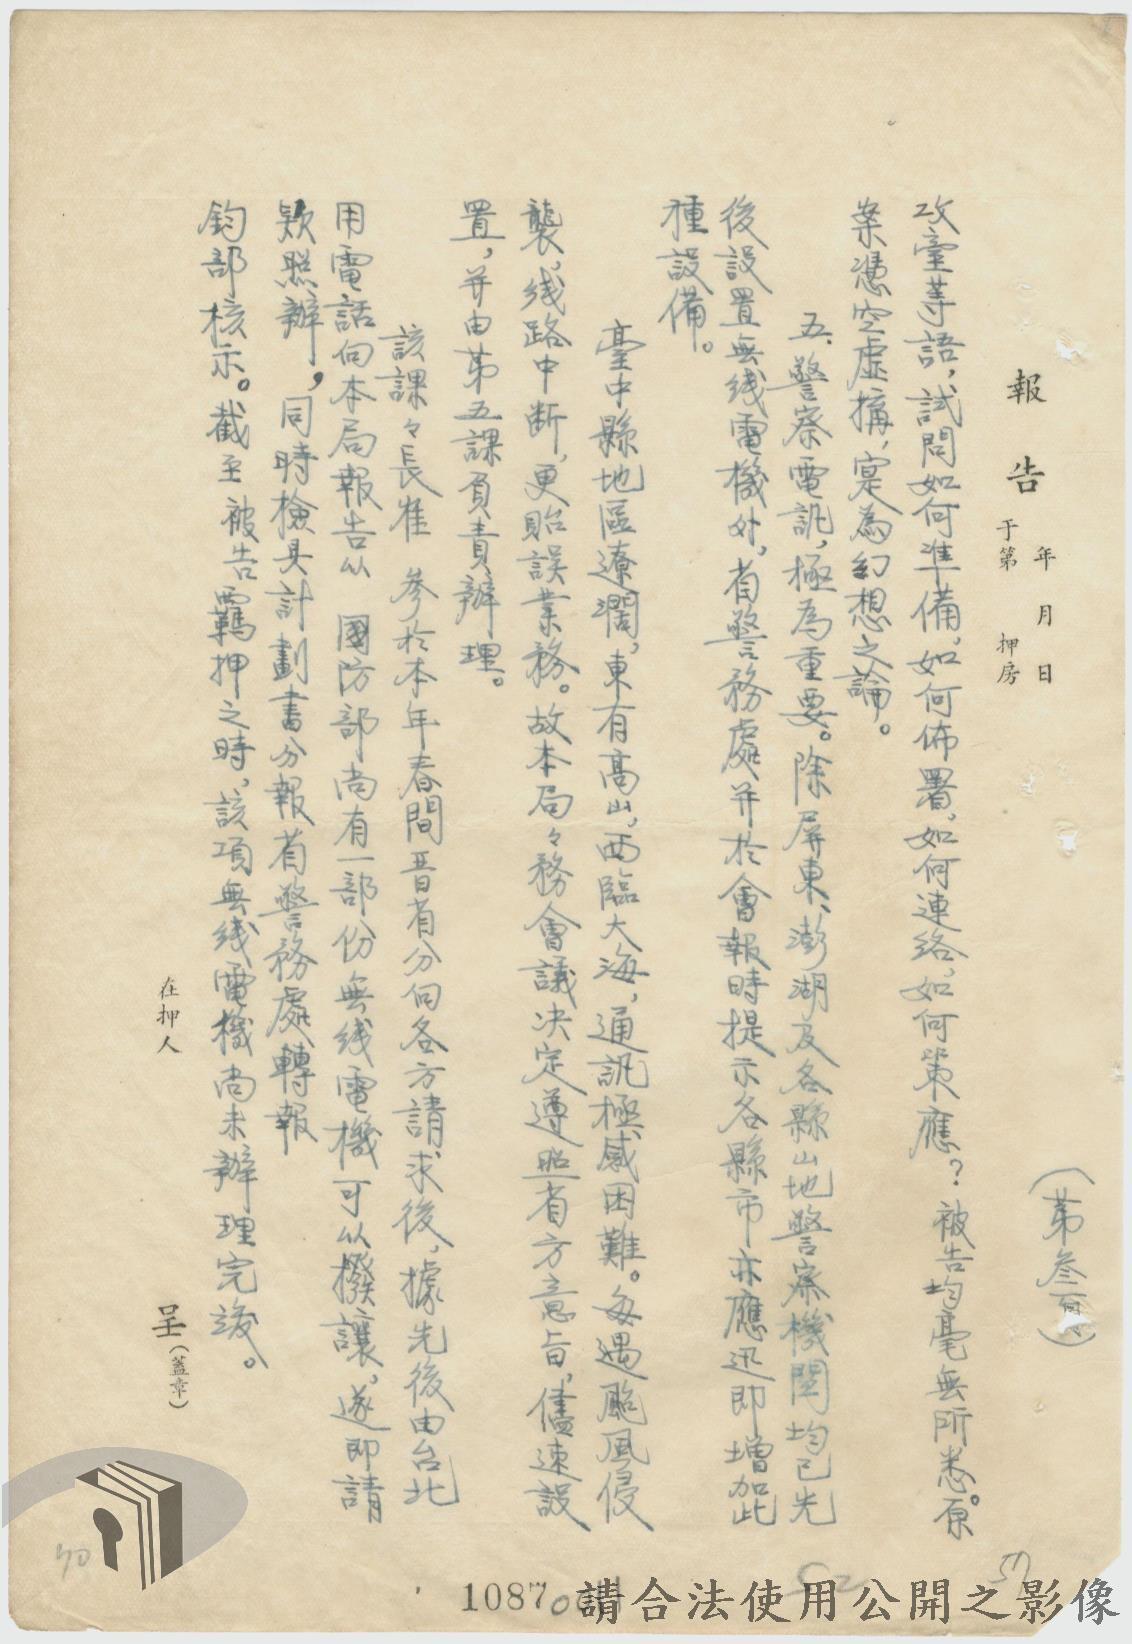 報告
年 月 日
于第 押房
(第叁頁)
攻臺等語，試問如何準備，如何佈署，如何連絡，如何策應？被告均毫無所悉。原
案憑空虛搆，寔為幻想之論。
五、警察電訊，極為重要。除屏東、澎湖及各縣山地警察機関均已先
後設置無线電機外，省警務處并於會報時提示各縣市亦應迅即增加此
種設備。
臺中縣地區遼濶，東有高山，西臨大海，通訊極感困難。每遇颱風侵
襲，线路中断，更貽誤業務。故本局々務會議决定遵照省方意旨，儘速設
置，并由第五課負責辦理。
該課々長崔 參於本年春間晋省分向各方請求後，據先後由台北
用電話向本局報告以 國防部尚有一部份無线電機可以撥讓，遂即請
欵照辦，同時檢具計劃書分報省警務處轉報
鈞部核示。截至被告羈押之時，該項無线電機尚未辦理完竣。
在押人
呈(蓋章)
70
52
57
1087
請合法使用公開之影像